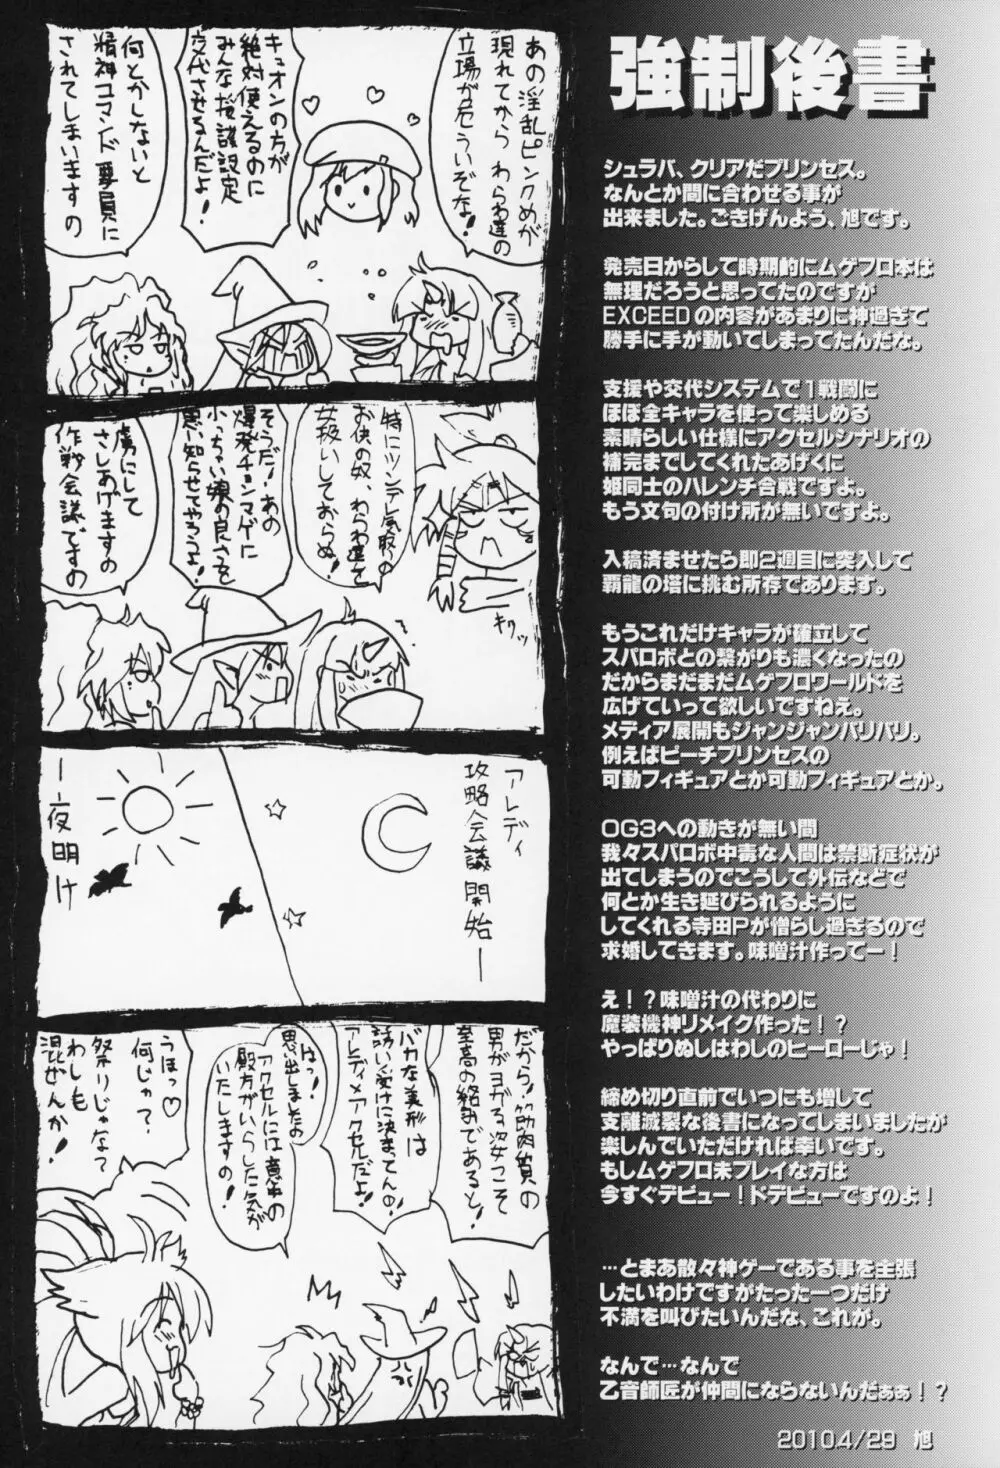 強制後書
シュラバ、クリアだプリンセス。
なんとか間に合わせる事が
出来ました。ごきげんよう、旭です。
発売日からして時期的にムゲフロ本は
無理だろうと思ってたのですが
EXCEEDの内容があまりに神過ぎて
勝手に手が動いてしまってたんだな。
支援や交代システムで1戦闘に
ほぼ全キャラを使って楽しめる
素晴らしい仕様にアクセルシナリオの
補完までしてくれたあげくに
姫同士のハレンチ合戦ですよ。
もう文句の付け所が無いですよ。
入稿済ませたら即2週目に突入して
覇龍の塔に挑む所存であります。
もうこれだけキャラが確立して
スパロボとの繋がりも濃くなったの
だからまだまだムゲフロワールドを
広げていって欲しいですねえ。
メディア展開もジャンジャンバリバリ。
例えばピーチプリンセスの
可動フィギュアとか可動フィギュアとか。
OG3への動きが無い間
我々スパロボ中毒な人間は禁断症状が
出てしまうのでこうして外伝などで
何とか生き延びられるように
してくれる寺田Pが憎らし過ぎるので
求婚してきます。味噌汁作ってー！
え！？味噌汁の代わりに
魔装機神リメイク作った！？
やっぱりぬしはわしのヒーローじゃ！
締め切り直前でいつにも増して
支離滅裂な後書になってしまいましたが
楽しんでいただければ幸いです。
もしムゲフロ未プレイな方は
今すぐデビュー！ドデビューですのよ！
…とまあ散々神ゲーである事を主張
したいわけですがたった一つだけ
不満を叫びたいんだな、これが。
なんで…なんで
乙音師匠が仲間にならないんだぁぁ！？
2010.4/29 旭
あの淫乱ピンクめが
現れてから わらわ達の
立場が危ういぞな！
キュオンの方が
絶対使えるのに
みんな桜談設定
交代させるんだよ！
何とかしないと
精神コマンド要員に
されてしまいますの
特にツンデレ気取りの
お供の奴、わらわ達を
女扱いしておらぬ！
そうだ！あの
爆発チョンマゲに
小っちゃい娘の良さを
思い知らせてやろうよ！
虜にして
さしあげますの
作戦会議ですの
キリッ
アレディ
攻略会議開始ー
ー夜明け
だから！筋肉質の
男がヨガる姿こそ
至高の絡みであると！
バカな美形は
誘い受けに決まってんの！
アレディ×アクセルだよ！
はっ！
思い出しましたの
アクセルには意中の
殿方がいらした気が
いたしますの！
うほっ♡
何じゃ？
祭りじゃな？
わしも
混ぜんか！